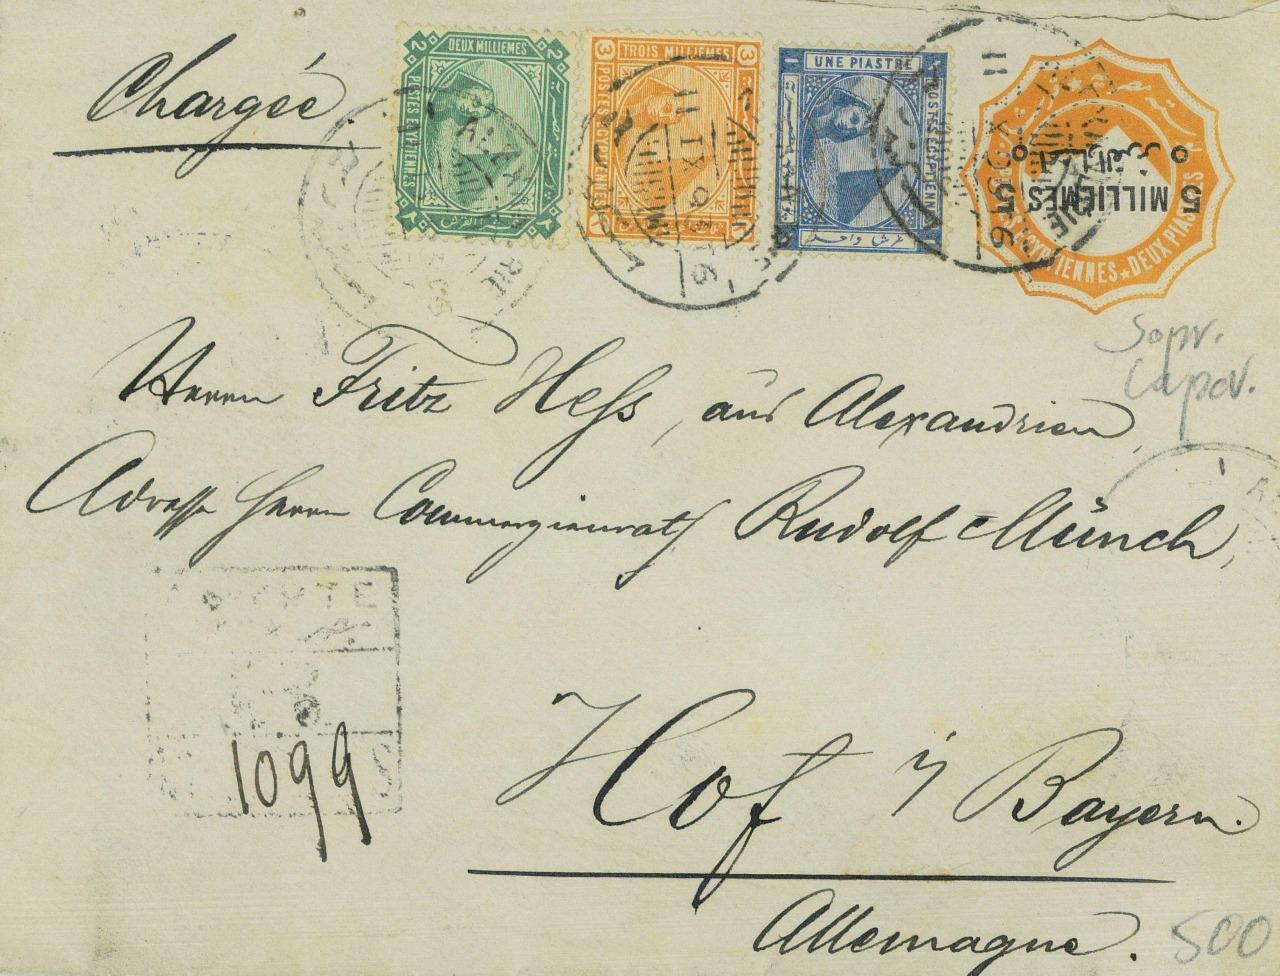 Chargée
2 DEUX MILLIEMES 2
POSTES EGYPTIENNES
3 TROIS MILLIEMES 3
POSTES EGYPTIENNES
1 UNE PIASTRE 1
POSTES EGYPTIENNES
غرش واحد
5 MILLIÈMES 5
POSTES EGYPTIENNES ★ DEUX PIASTRES
11 IX 95 T6
11 IX 95 6
Sopr.
Capov.
Herrn Fritz Hess, aus Alexandrien,
Adresse Herrn Commerzienrath Rudolf Münch,
1099
Hof i/ Bayern.
Allemagne.
500